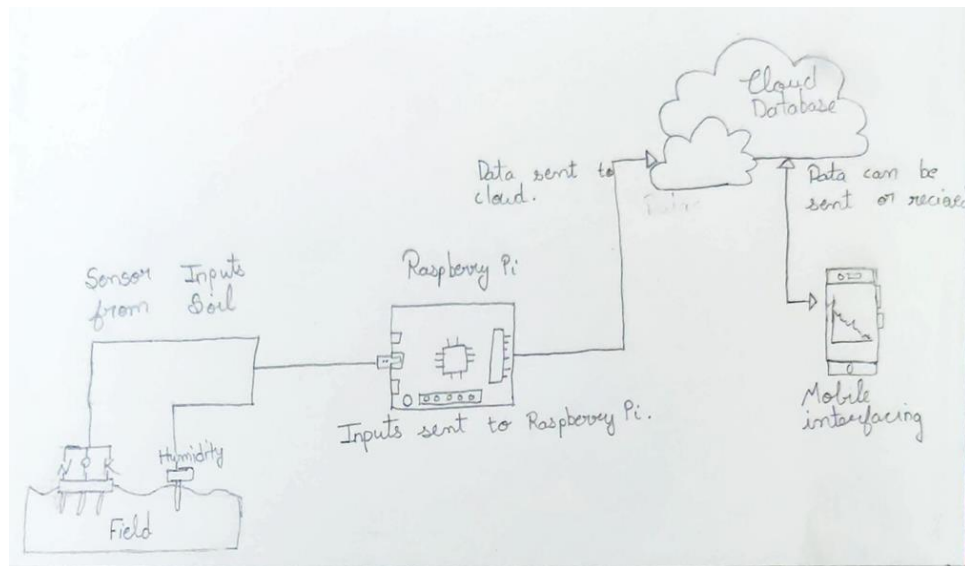 Cloud
Database
Data sent to
cloud.
Data can be
sent or recived
Sensor Inputs
from Soil
Raspberry Pi
Inputs sent to Raspberry Pi.
Mobile
interfacing
N P K
Humidity
Field